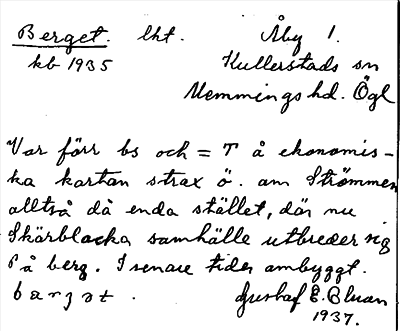 Berget. lht. Åby 1.
kb 1935 Kullerstads sn
Memmings hd. Ögl
Var förr bs och = T å ekonomis-
ka kartan strax ö. om Strömmen
alltså då enda stället, där nu
Skärblacka samhälle utbreder sig
På berg. I senare tider ombyggt.
bærjət. Gustaf E. Bluan
1937.